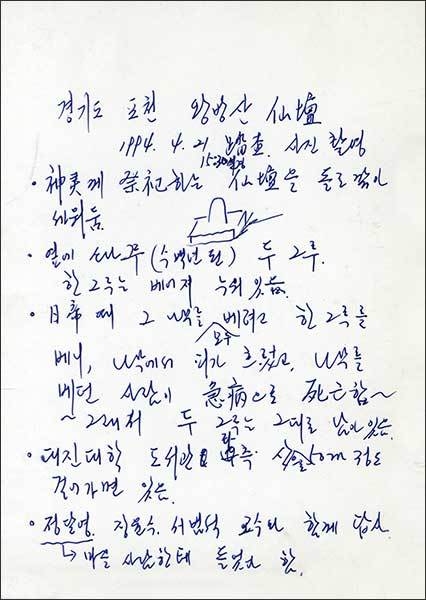 경기도 포천 왕방산 仙壇
1994. 4. 21 踏査. 사진 촬영
15:30
• 神灵께 祭祀하는 仙壇을 돌로 깎아
세워둠.
• 옆에 소나무(수백년 된) 두 그루.
한 그루는 베어져 누워 있음.
• 日帝 때 그 나무를 베려고 한 그루를
모두
베니, 나무에서 피가 흐르고, 나무를
베던 사람이 急病으로 死亡함~
~ 그래서 두 그루는 그대로 남아 있음.
• 대진대학 도서관 50m 정도
걸어가면 있음.
• 정달영. 장윤수. 서범석 교수와 함께 답사
↳ 마을 사람한테 들었다 함.